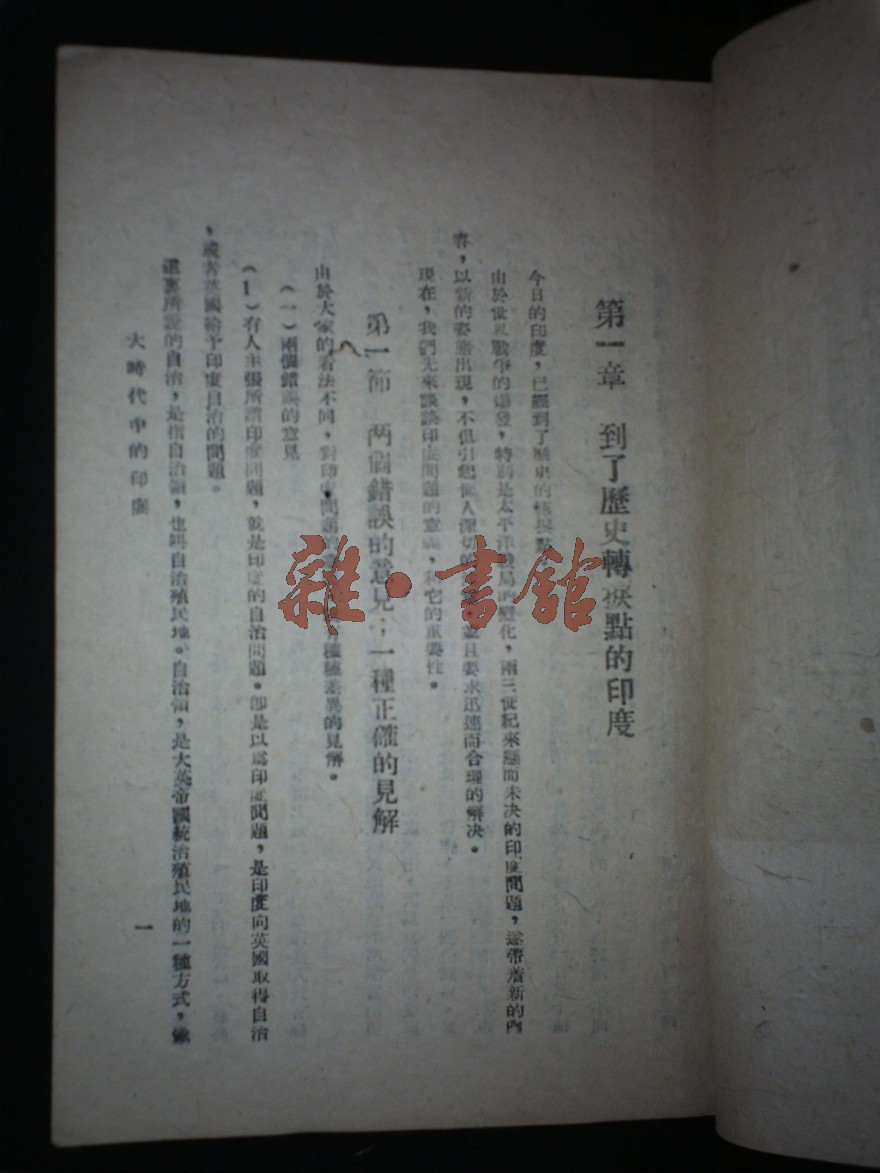 第一章 到了歷史轉捩點的印度
今日的印度，已經到了歷史的轉捩點
由於世界戰爭的爆發，特別是太平洋戰局的變化，兩三世紀來懸而未決的印度問題，遂帶着新的內
容，以新的姿態出現，不但引起世人深切的 並且要求迅速而合理的解决。
現在，我們先來談談印度問題的意義，和它的重要性。
第一節 两個錯誤的意見；一種正確的見解
由於大家的看法不同，對印度問題的 有種種差異的見解。
（一）兩個錯誤的意見
（1）有人主張所謂印度問題，就是印度的自治問題。卽是以爲印度問題，是印度向英國取得自治
，或者英國給予印度自治的問題。
這裏所說的自治，是指自治領，也叫自治殖民地。自治領，是大英帝國統治殖民地的一種方式，像
大時代中的印度
一
雜·書館